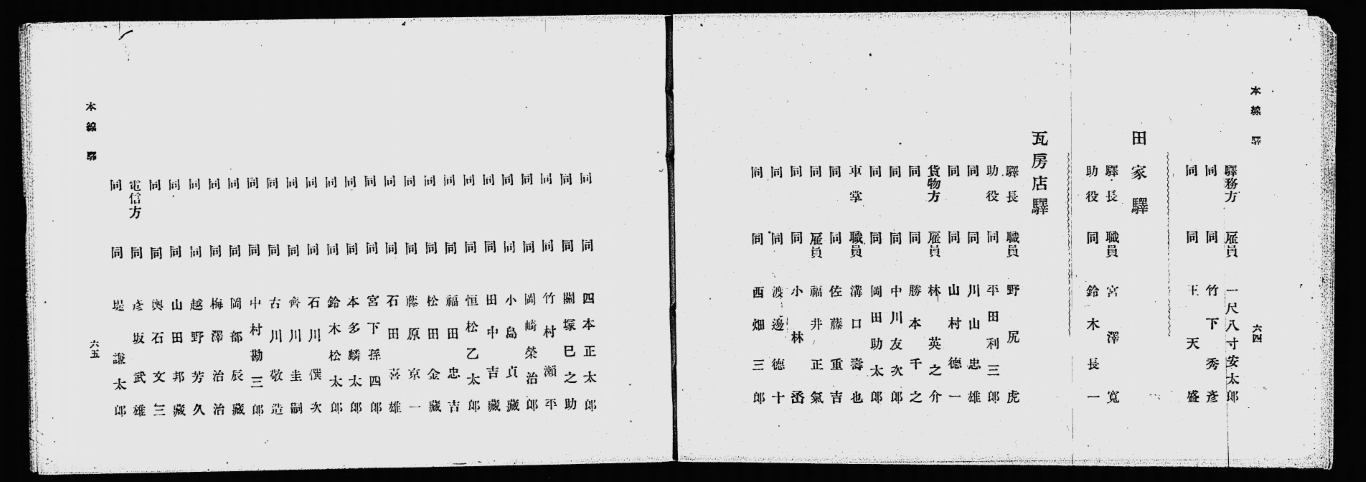 本線驛
六四
驛務方 雇員 一尺八寸安太郎
同 同 竹下秀彦
同 同 王天盛
田家驛
驛長 職員 宮澤寬
助役 同 鈴木長一
瓦房店驛
驛長 職員 野尻虎
助役 同 平田利三郎
同 同 川山忠雄
同 同 山村德一
貨物方 雇員 林英之介
同 同 勝本千之
同 同 中川友次郎
同 同 岡田助太郎
車掌 職員 溝口壽也
同 同 佐藤重吉
同 雇員 福井正氣
同 同 小林
同 同 渡邊德十
同 同 西畑三郎
本線驛
六五
同 同 四本正太郎
同 同 關塚巳之助
同 同 竹村瀨平
同 同 岡崎榮治郎
同 同 小島貞藏
同 同 田中吉藏
同 同 恒松乙太郎
同 同 福田忠吉
同 同 松田金藏
同 同 藤原京一
同 同 石田喜雄
同 同 宮下孫四郎
同 同 本多麟太郎
同 同 鈴木松太郎
同 同 石川僕次
同 同 齊川圭嗣
同 同 古川敬造
同 同 中村勘三郎
同 同 岡部辰藏
同 同 梅澤治治
同 同 越野芳久
同 同 山田邦藏
同 同 輿石文三
電信方 同 彦坂武雄
同 同 堤謙太郎